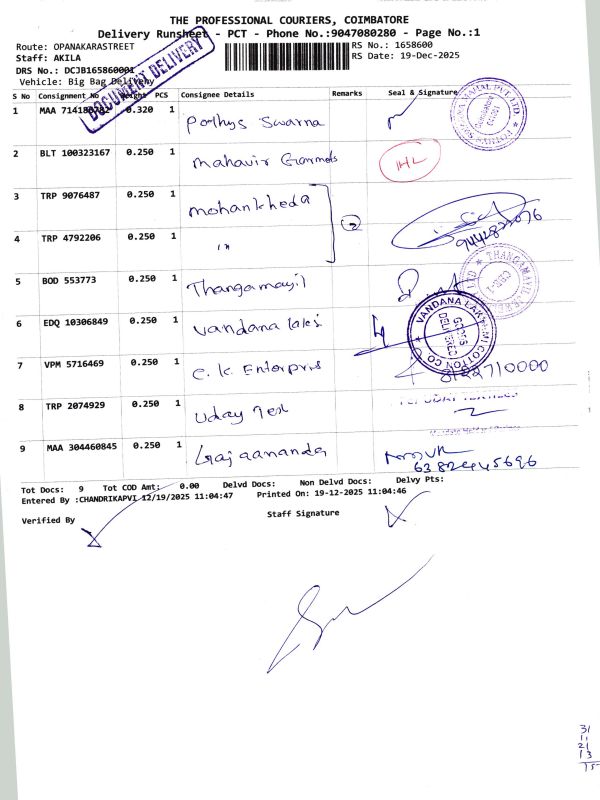 THE PROFESSIONAL COURIERS, COIMBATORE
Delivery Runsheet - PCT - Phone No.:9047080280 - Page No.:1
Route: OPANAKARASTREET
RS No.: 1658600
Staff: AKILA
RS Date: 19-Dec-2025
DRS No.: DCJB165860001
Vehicle: Big Bag Delivery
DOCUMENT DELIVERY
S No Consignment No Weight PCS Consignee Details Remarks Seal & Signature
1 MAA 0.320 1 Pothys Swarna
2 BLT 100323167 0.250 1 Mahavir Garments
3 TRP 9076487 0.250 1 Mohankheda
4 TRP 4792206 0.250 1 2
5 BOD 553773 0.250 1 Thangamayil
6 EDQ 10306849 0.250 1 Vandana
VANDANA LAKSHMI COTTON CO
GOODS DELIVERED
7 VPM 5716469 0.250 1 C.K. Enterpris 8122710000
8 TRP 2074929 0.250 1 Uday Text
9 MAA 304460845 0.250 1
6382445696
Tot Docs: 9 Tot COD Amt: 0.00 Delvd Docs: Non Delvd Docs: Delvy Pts:
Entered By :CHANDRIKAPVI 12/19/2025 11:04:47 Printed On: 19-12-2025 11:04:46
Verified By Staff Signature
31
11
21
13